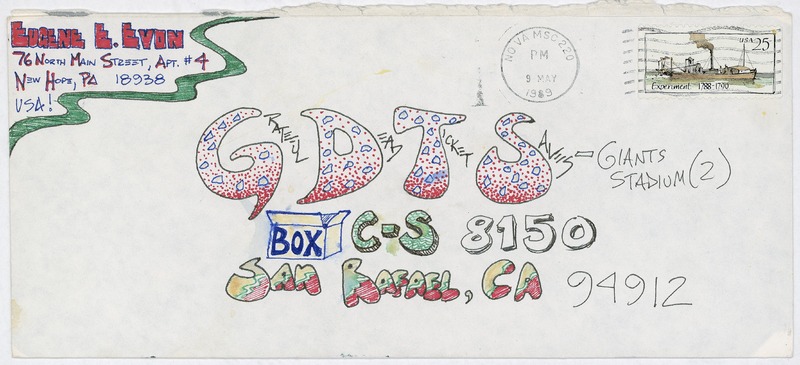 EUGENE E. EVON
76 NORTH MAIN STREET, APT. #4
NEW HOPE, PA 18938
USA!
NO VA MSC 220
PM
9 MAY
1989
USA 25
Experiment 1788-1790
GRATEFUL DEAD TICKET SALES - GIANTS
STADIUM (2)
BOX C-S 8150
SAN RAFAEL, CA 94912